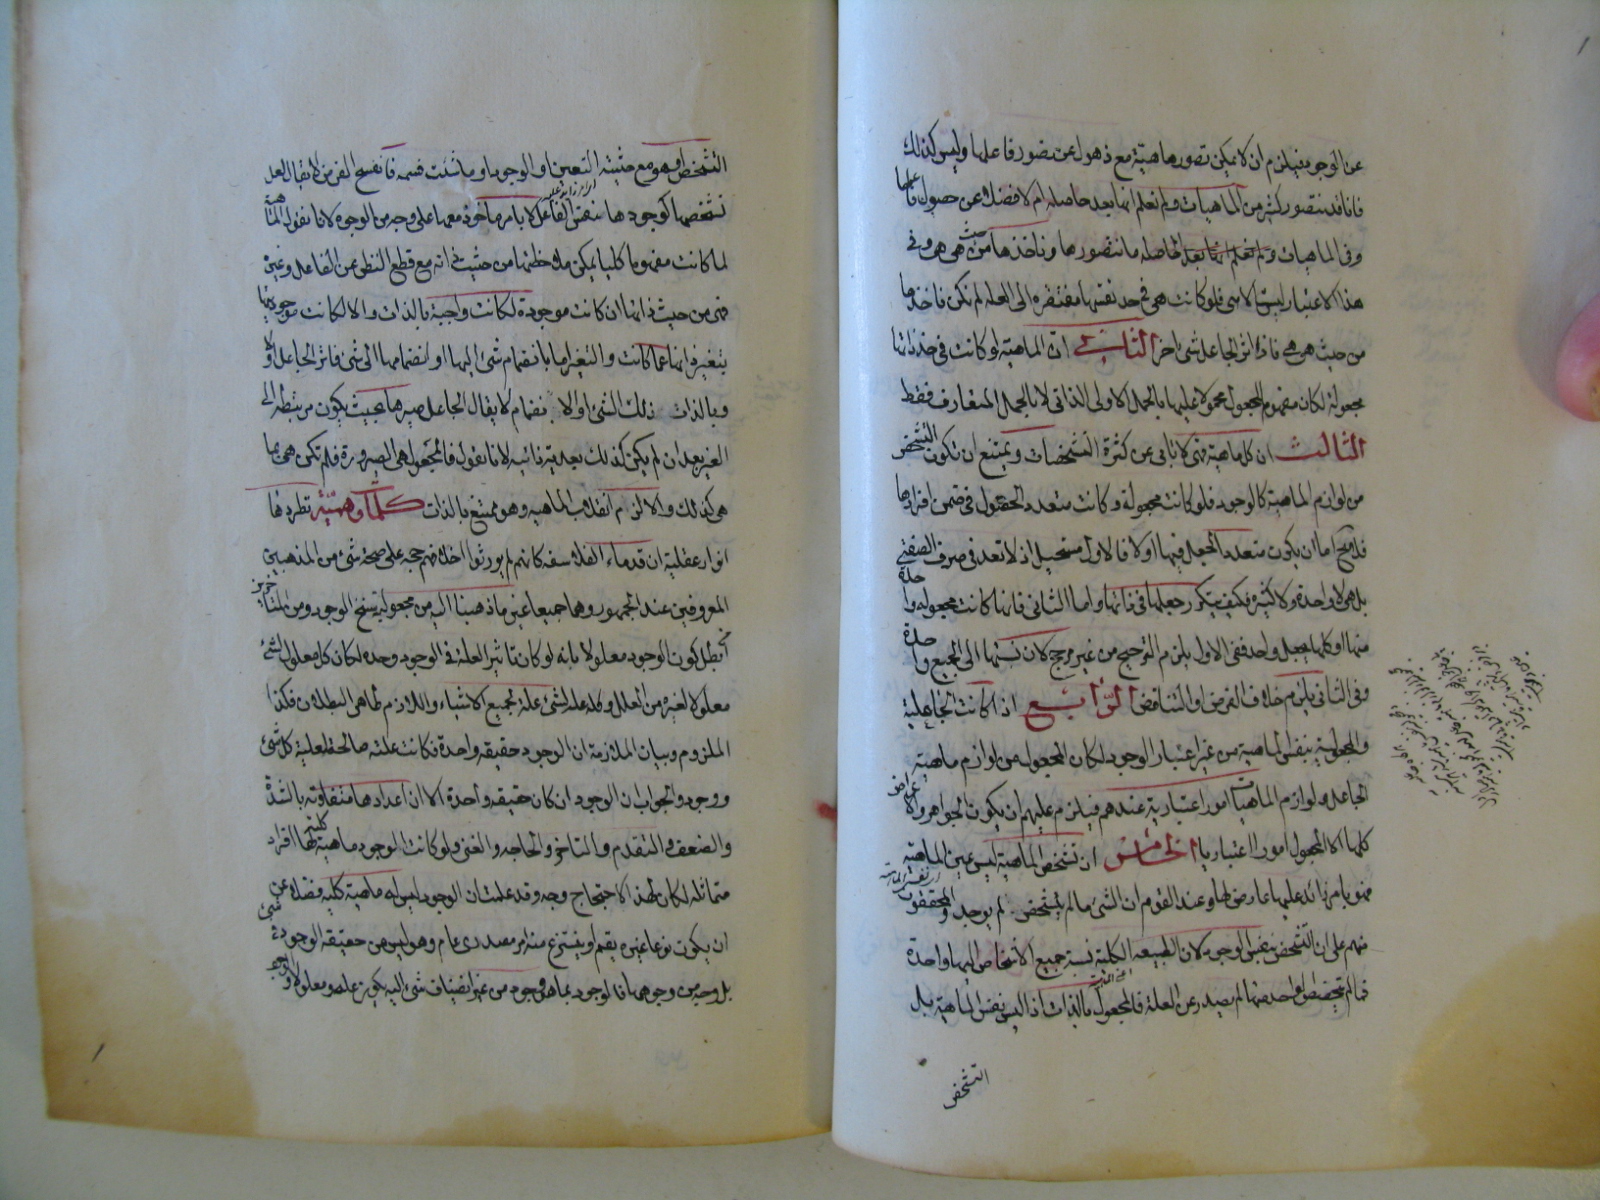 عن الوجود فيلزم ان لا يمكن تصور ماهية مع ذهول عن تصور فاعلها وليس كذلك
فانا قد نتصور كثير من الماهيات ولم نعلم انها بعد حاصلة ام لا فضلا عن حصول فاعلها
وفي الماهيات ما نتصورها وناخذها من حيث هي هي وفي
هذا الاعتبار ليست الا هي فلو كانت هي في حد نفسها مفتقرة الى العلة لم تكن ماخذها
من حيث هي هي فاذا اثر الجاعل شئ اخر الثاني ان الماهية لو كانت في حد ذاتها
مجعولة لكان مفهوم المجعول محمولا عليها بالحمل الاولى الذاتى لا بالحمل المتعارف فقط
الثالث ان كل ماهية فهى لا تابى عن كثرة التشخصات ويمتنع ان تكون التشخص
من لوازم الماهية كالوجود فلو كانت مجعولة وكانت متعدد الحصول في ضمن افرادها
فلا يخ اما ان يكون متعدد الجعل فيها او لا فالاول مستحيل اذ لا تعدد في صرف الشئ
بل هى لا واحدة ولا كثيرة فكيف يتكرر جعلها في ذاتها واما الثانى فاما كانت مجعولة واحدة
منها او كلها بجعل واحد ففى الاول يلزم الترجيح من غير مرجح لان نسبتها الى الجميع واحدة
وفى الثانى يلزم خلاف الفرض والتناقض الرابع اذا كانت الجاعلية
والمجعولية بنفس الماهية من غير اعتبار الوجود لكان المجعول من لوازم ماهية
الجاعل ولوازم الماهيات امور اعتبارية عندهم فيلزم عليهم ان يكون الجواهر والاعراض
كلها الا المجعول امورا اعتباريا الخامس ان تشخص الماهية ليس عين الماهية
فهو بامر زائد عليها عارض لها وعند القوم ان الشئ ما لم يتشخص لم يوجد والمحققون
منهم على ان التشخص بنفس الوجود لان الطبيعة الكلية نسبة جميع الاشخاص اليها واحدة
فما لم يتخصص بواحد منها لم يصدر عن العلة فالمجعول بالذات اذا ليس نفس الماهية بل
التشخص
التشخص او هو مع حيثية التعين او الوجود او ما شئت فسمه فانفسح الفرض لا يقال لعل
تشخصها كوجودها بنفس الفاعل لا بامر ماخوذ معها على وجه من الوجوه لانا نقول الماهية
لما كانت مفهوما كليا يمكن ملاحظتها من حيث ذاته مع قطع النظر عن الفاعل وغيره
فهى من حيث ذاتها ان كانت موجودة لكانت واجبة بالذات والا لكانت موجوديتها
بتغير ذاتها عما كانت والتغير اما بانضمام شئ اليها او انضمامها الى شئ فاثر الجاعل اولا
وبالذات ذلك الشئ او الانضمام لا يقال الجاعل صيرها بحيث يكون مرتبطة الى
الغير بعد ان لم يكن كذلك بعدية ذاتية لانا نقول فالمجعول هى الصيرورة فلم تكن هى بما
هى كذلك والا لزم انقلاب الماهية وهو ممتنع بالذات كلمات وهمية تطردها
انوار عقلية ان قدماء الفلاسفة كانهم لم يورثوا اخلافهم حجة على صحة شئ من المذهبين
المعروفين عند الجمهور وهما جميعا غير ما ذهبنا اليه من مجعولية سنخ الوجود ومن المتاخرين
ابطل كون الوجود معلولا بانه لو كان تاثير العلة في الوجود وحده لكان كل معلول لشئ
معلولا لغيره من العلل وكل علة لشئ علة لجميع الاشياء واللازم ظاهر البطلان فكذا
الملزوم وبيان الملازمة ان الوجود حقيقة واحدة فكانت علته صالحة لعلية كل شئ
ووجود والجواب ان الوجود ان كان حقيقة واحدة الا ان اعدادها متفاوتة بالشدة
والضعف والتقدم والتاخر والحاجة والغنى ولو كانت الوجود ماهية كلية لها افراد
متماثلة لكان لهذا الاحتجاج وجه وقد علمت ان الوجود ليس له ماهية كلية فضلا عن
ان يكون نوعا غيره يقم او ينتزع منه امر مصدرى عام وهو ليس من حقيقة الوجود في شئ
بل وجه من وجوهها فالوجود بما هو وجود من غير انضياف شئ اليه يكون علة ومعلولا والوجود